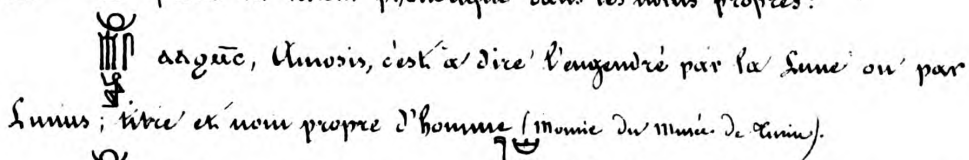 dans les noms propres.
Amosis, c'est à dire l'engendré par la Lune ou par
Lunus; titre et nom propre d'homme (momie du musée de Turin).